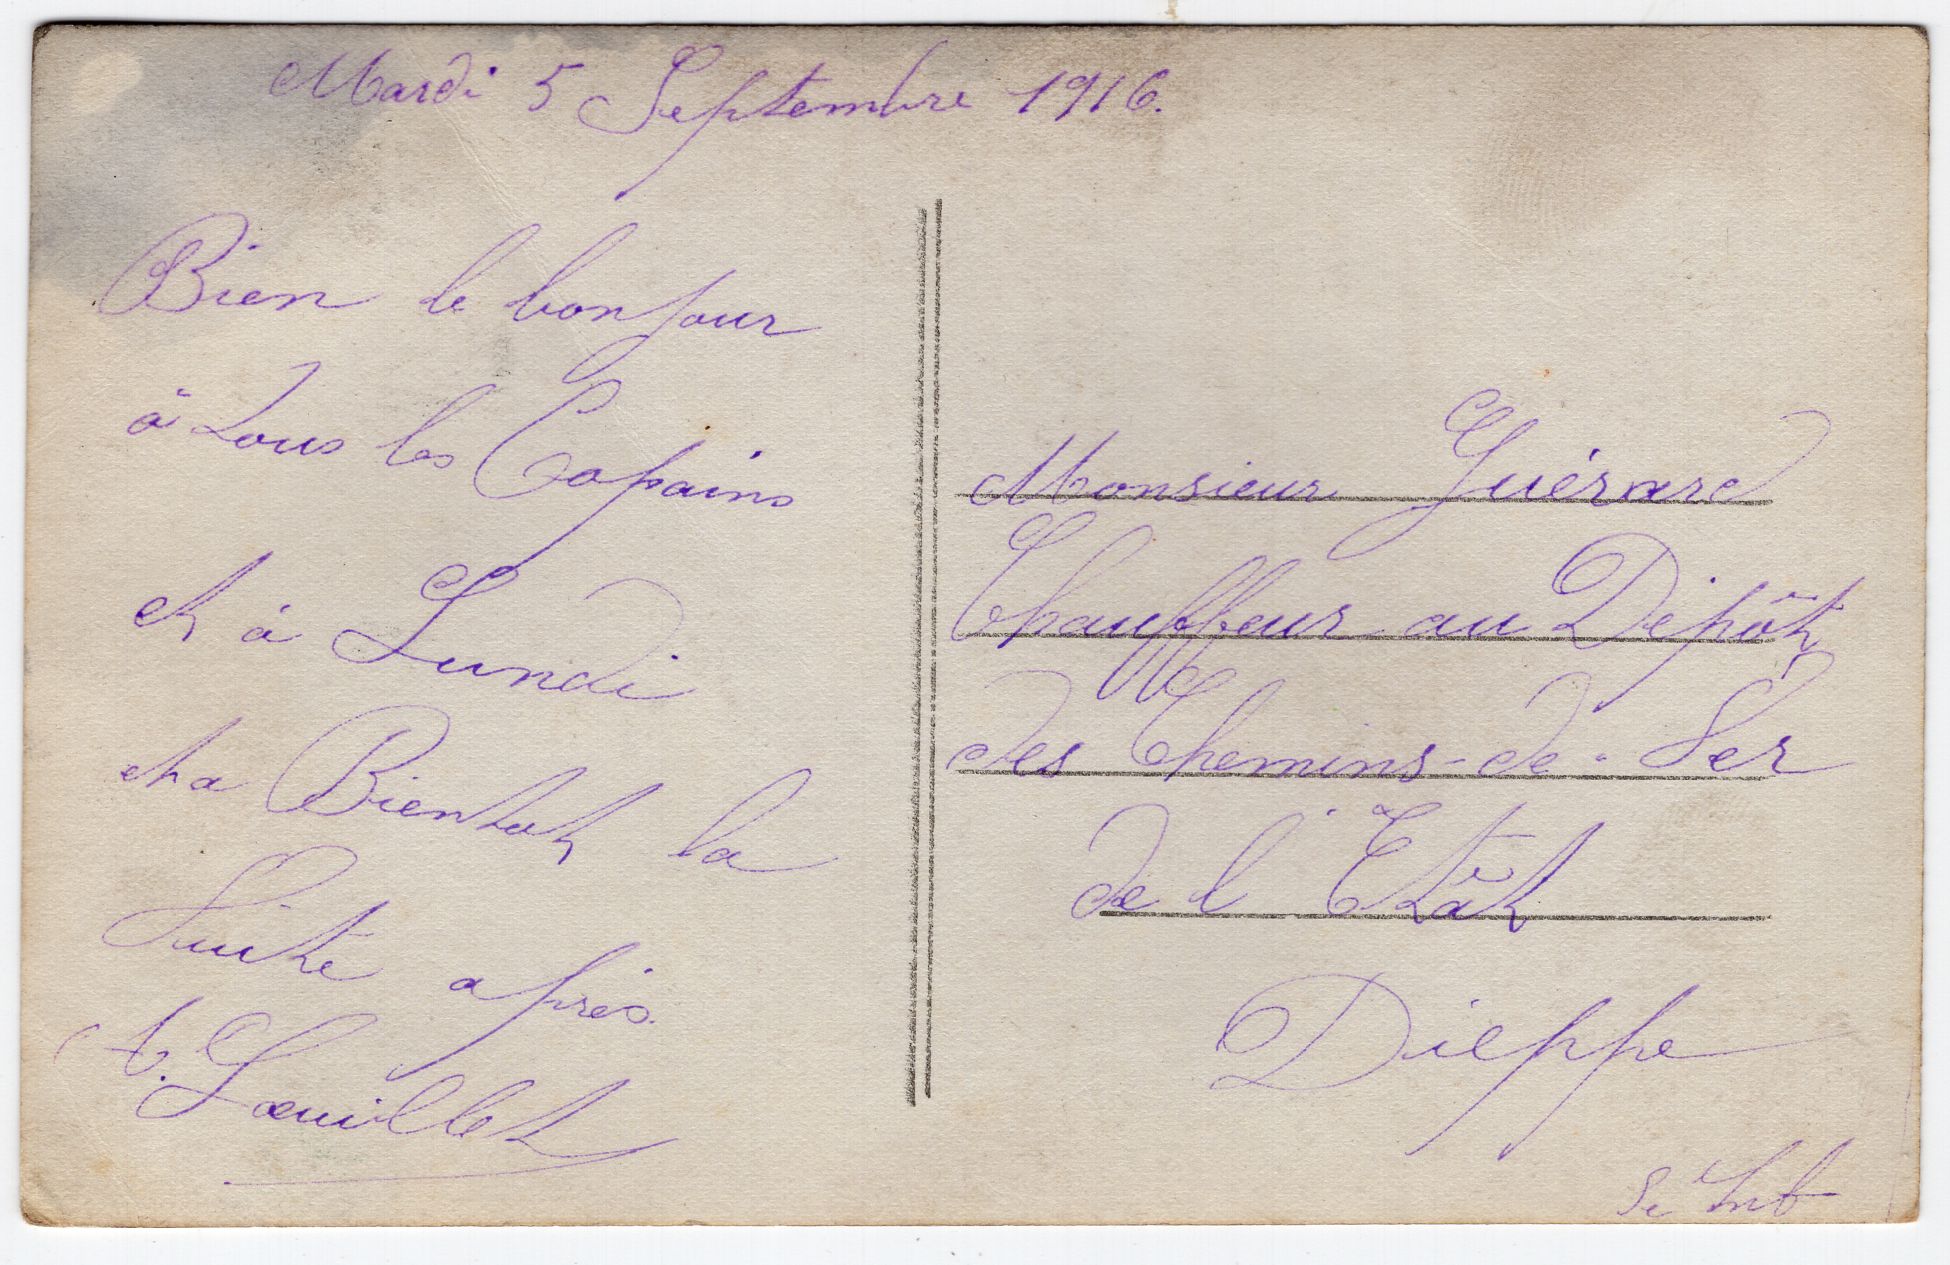 Mardi 5 Septembre 1916.
Bien le bonjour
à tous les Copains
et à Lundi
et a Bientot la
Suite après
A. Lœuillet
Monsieur Guérard
Chauffeur au Dépôt
des Chemins-de-Fer
de l'Etât
Dieppe
Se Inf